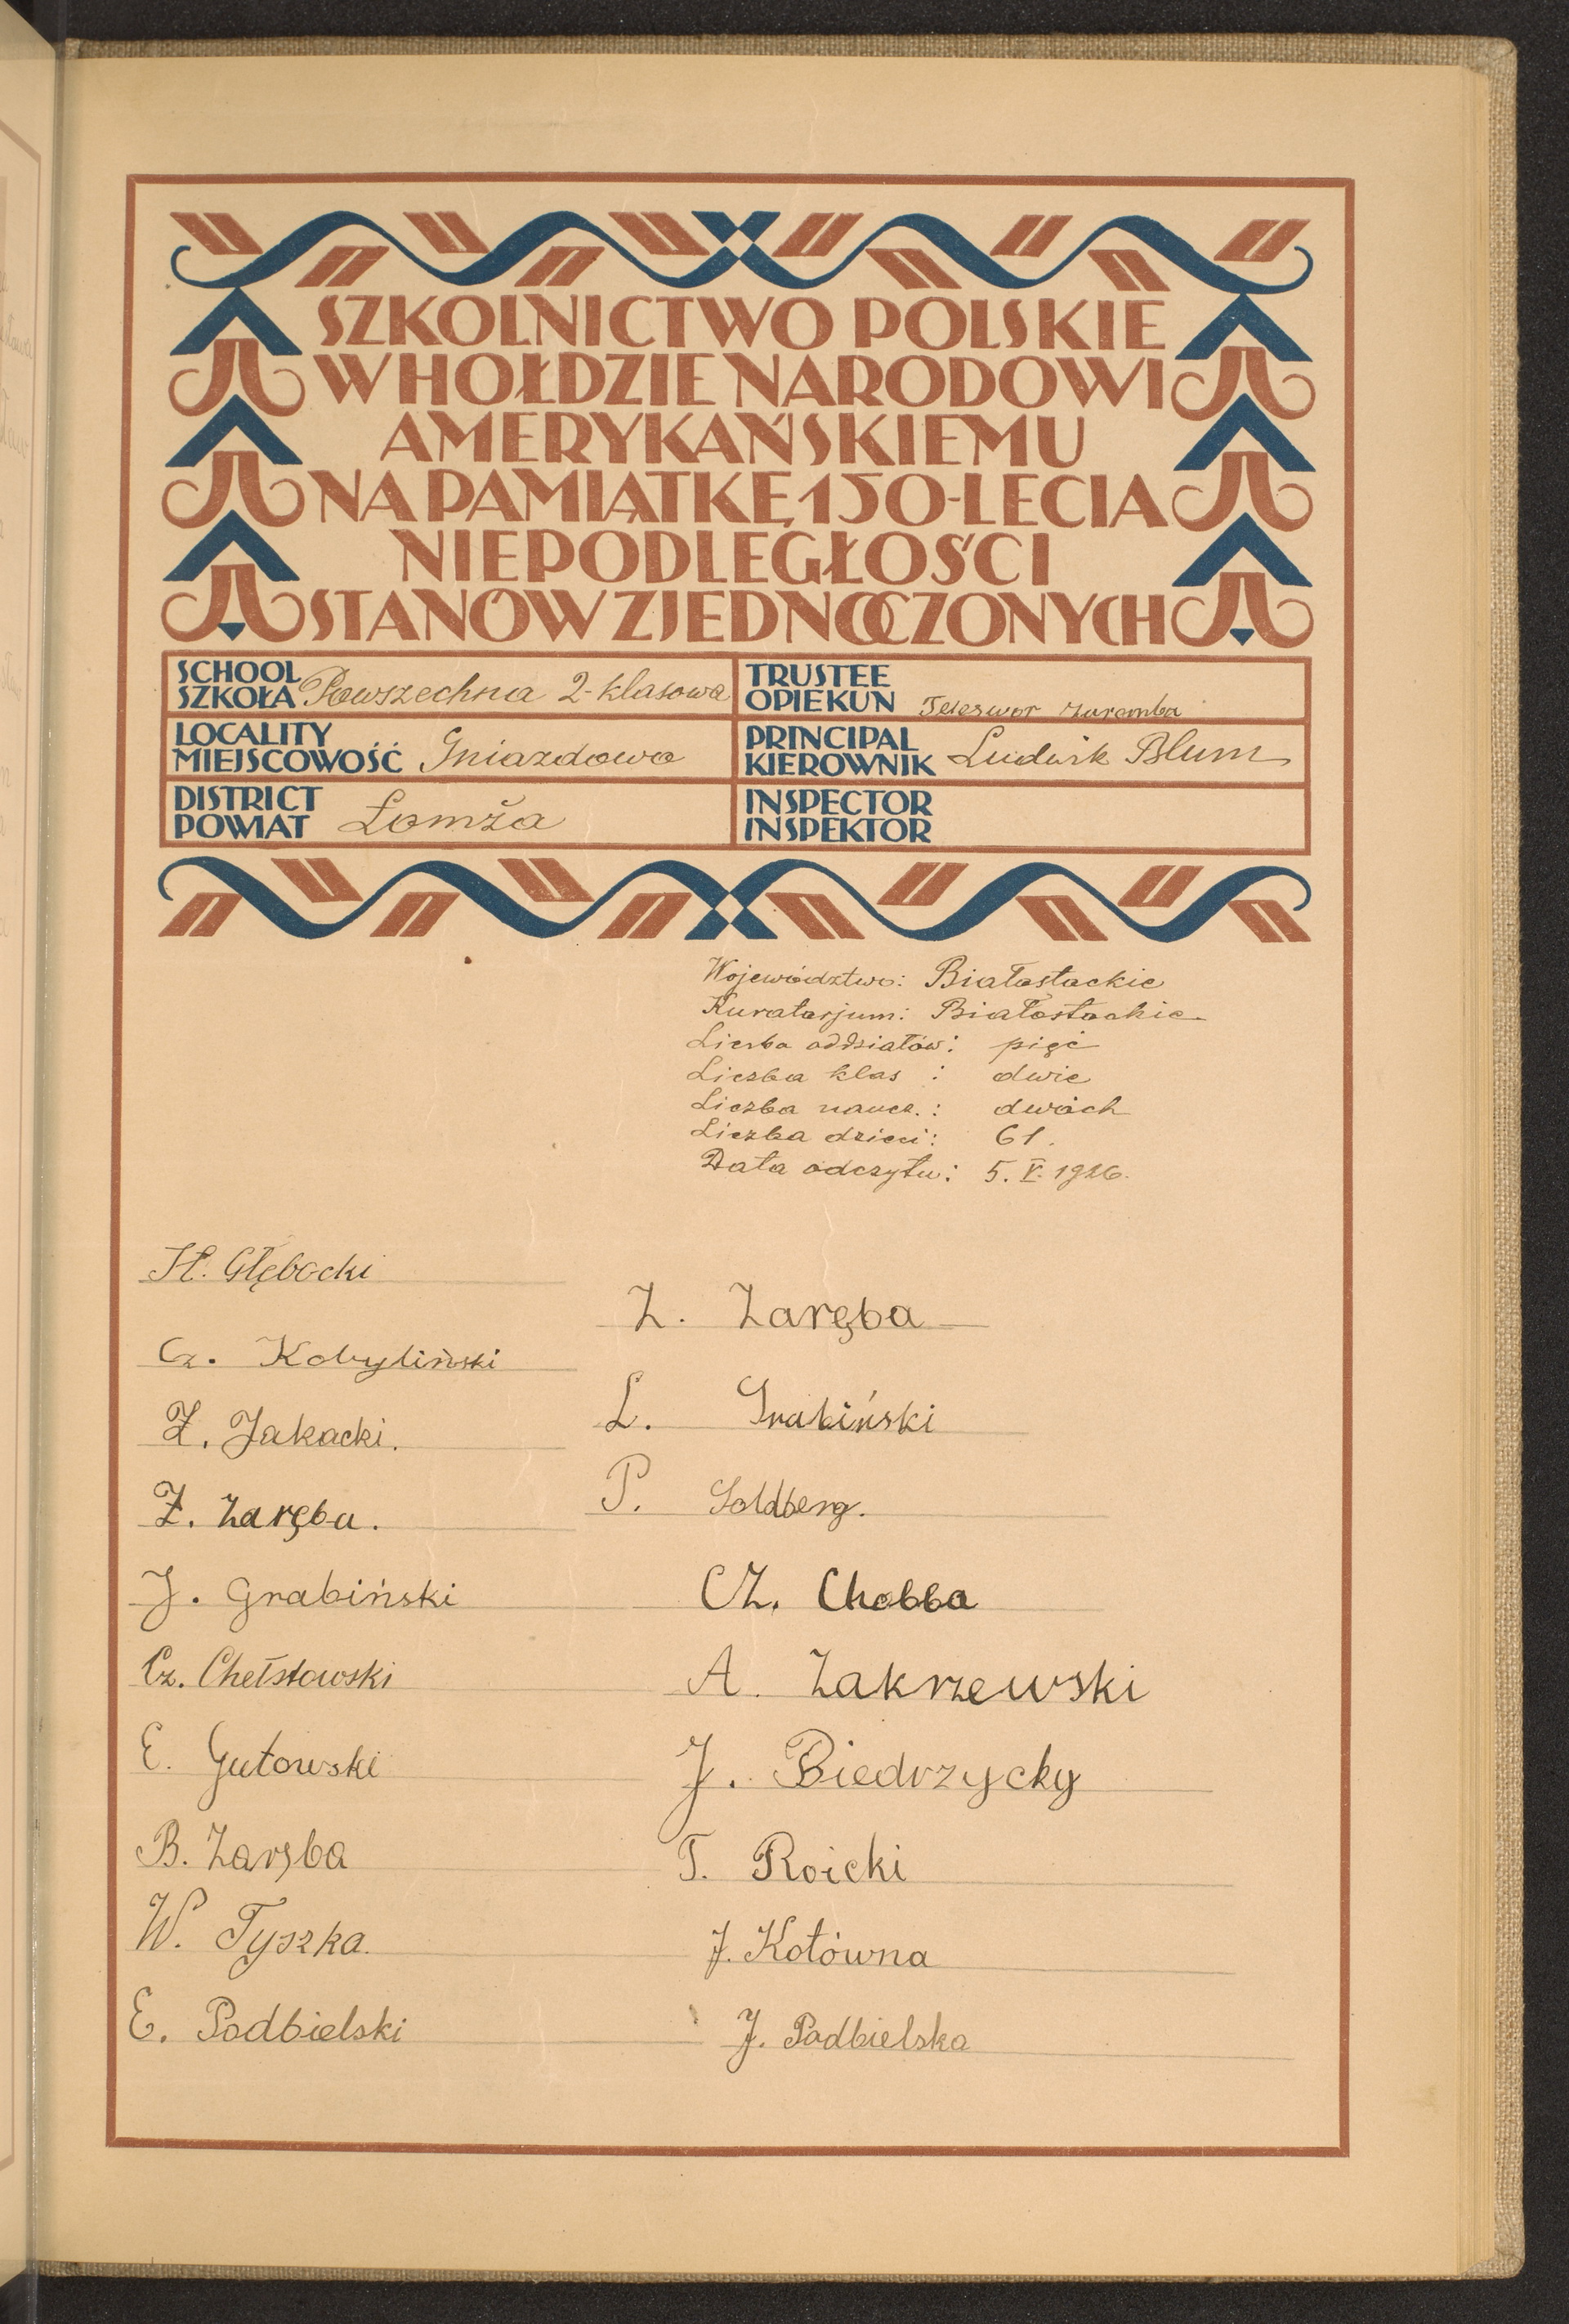 SZKOLNICTWO POLSKIE
W HOŁDZIE NARODOWI
AMERYKAŃSKIEMU
NA PAMIĄTKĘ 150-LECIA
NIEPODLEGŁOŚCI
STANÓW ZJEDNOCZONYCH
SCHOOL
SZKOŁA Powszechna 2-klasowa
TRUSTEE
OPIEKUN Teleswor Zaremba
LOCALITY
MIEJSCOWOŚĆ Gniazdowo
PRINCIPAL
KIEROWNIK Ludwik Blum
DISTRICT
POWIAT Łomża
INSPECTOR
INSPEKTOR
Województwo: Białostockie
Kuratorjum: Białostockie
Liczba oddziałów: pięć
Liczba klas : dwie
Liczba naucz.: dwóch
Liczba dzieci: 61.
Data odczytu: 5. V. 1926.
H. Głębocki
Cz. Kobyliński
Z. Jakacki.
Z. Zaręba.
J. Grabiński
Cz. Chełstowski
E. Gutowski
B. Zaręba
W. Tyszka.
E. Podbielski
Z. Zaręba
L. Grabiński
P. Goldberg.
CZ. Chobba
A. Zakrzewski
J. Biedrzycky
T. Roicki
J. Kotówna
J. Podbielska